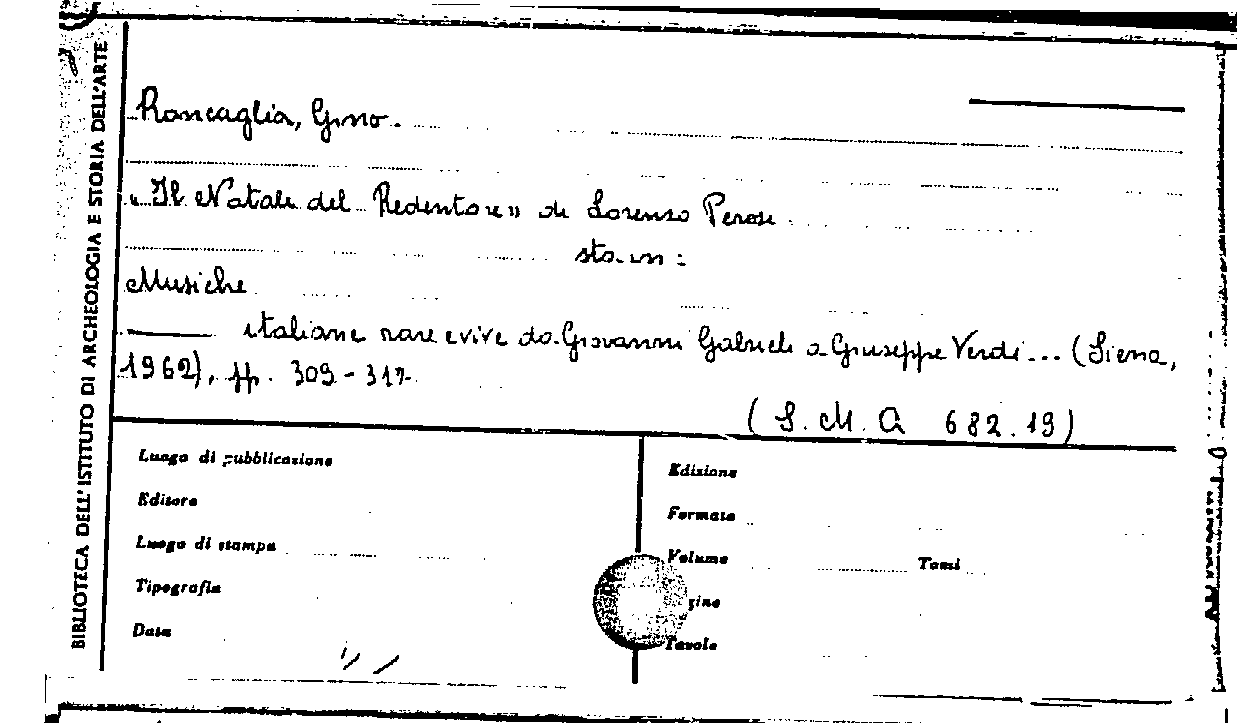 BIBLIOTECA DELL'ISTITUTO DI ARCHEOLOGIA E STORIA DELL'ARTE
Roncaglia, Gino.
"Il Natale del Redentore" di Lorenzo Perosi.
sta in:
Musiche
italiane rare e vive da Giovanni Gabrieli a Giuseppe Verdi... (Siena,
1962), pp. 309-317.
(S. M. A 682.19)
Luogo di pubblicazione
Editore
Luogo di stampa
Tipografia
Data
Edizione
Formato
Volume Tomi
gine
Tavole